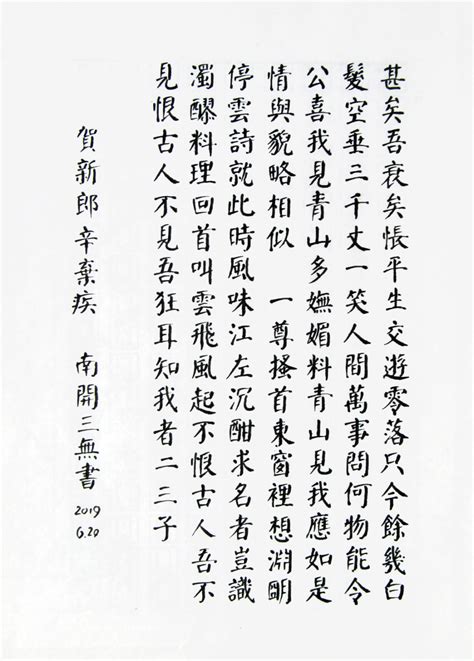 甚矣吾衰矣悵平生交遊零落只今餘幾白
髮空垂三千丈一笑人間萬事問何物能令
公喜我見青山多嫵媚料青山見我應如是
情與貌略相似 一尊搔首東窗裡想淵明
停雲詩就此時風味江左沉酣求名者豈識
濁醪料理回首叫雲飛風起不恨古人吾不
見恨古人不見吾狂耳知我者二三子
賀新郎辛棄疾 南開三無書
2019
6.20